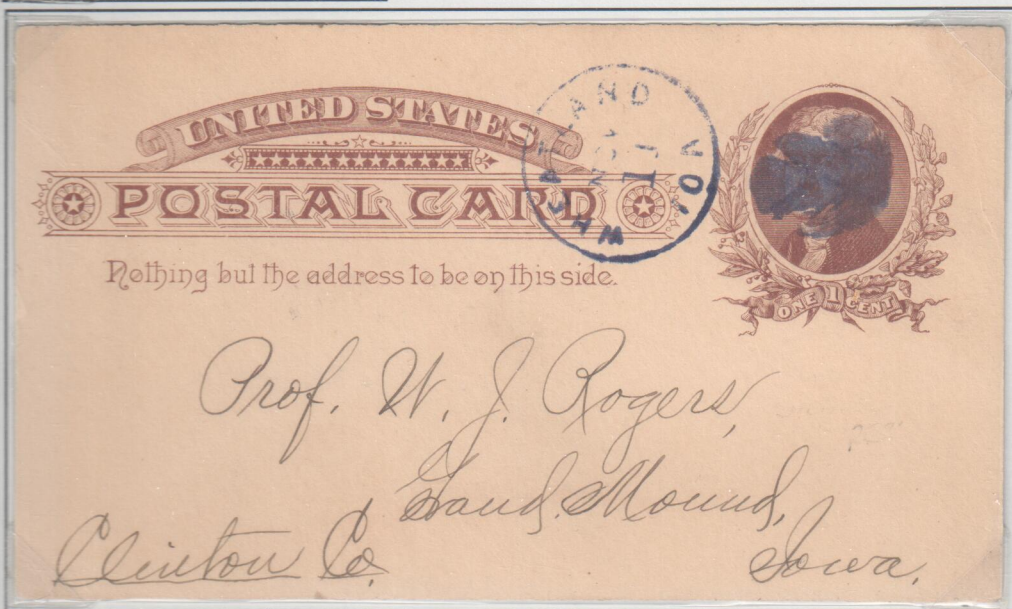 UNITED STATES
POSTAL CARD
Nothing but the address to be on this side.
WHEATLAND IOWA
NOV
11
ONE 1 CENT
Prof. W. J. Rogers,
Grand Mound,
Clinton Co. Iowa.